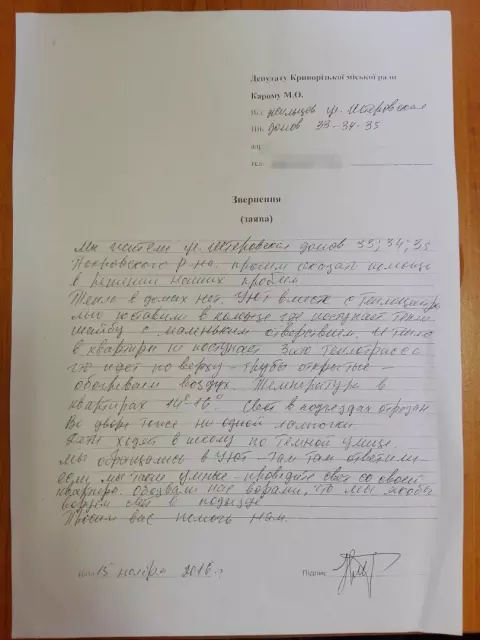 Депутату Криворізької міської ради
Карому М.О.
Від жильцов ул. Истровская
ПІБ домов 33-34-35
адр
тел.
Звернення
(заява)
Мы жители ул. Истровская домов 33; 34; 35
Покровского р-на. просим оказать помощь
в решении наших проблем
Тепла в домах нет. Уют вместе с
поставили в где поступает тепло
шайбу с маленьким отверствием. И тепло
в квартиры не поступает. Зато теплотрасса
где идет по верху - трубы открытые -
обогреваем воздух. Температура в
квартирах 14°-16°. Свет в подъездах отрезан
Во дворе тоже ни одной лампочки.
Дети ходят в школу по темной улице.
Мы обращались в Уют - там ответили
если мы такие умные - проведите свет со своей
квартиры. Обозвали нас ворами, что мы якобы
воруем свет в подъезде
Просим вас помочь нам.
Дата 15 ноября 2016 г
Підпис